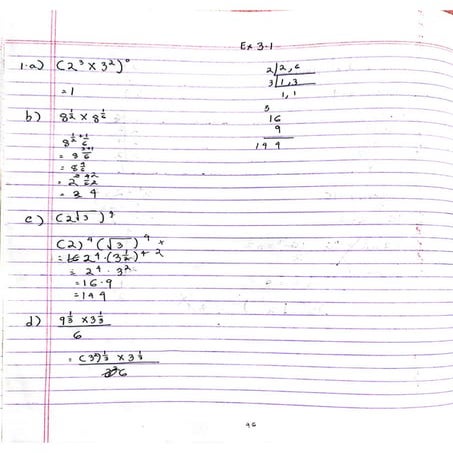 Ex 3.1
1.a) (2³ × 3²)⁰
= 1
2 | 2, 6
3 | 1, 3
1, 1
b) 8^(1/2) × 8^(1/6)
8^(1/2 + 1/6)
= 8^((3+1)/6)
= 8^(4/6)
= 4
3
16
9
144
c) (2√3)⁴
(2)⁴ (√3)⁴
= 2⁴ · (3^(1/2))⁴
= 2⁴ · 3²
= 16 · 9
= 144
d) 9^(1/3) × 3^(1/3)
6
= (3²)^(1/3) × 3^(1/3)
6